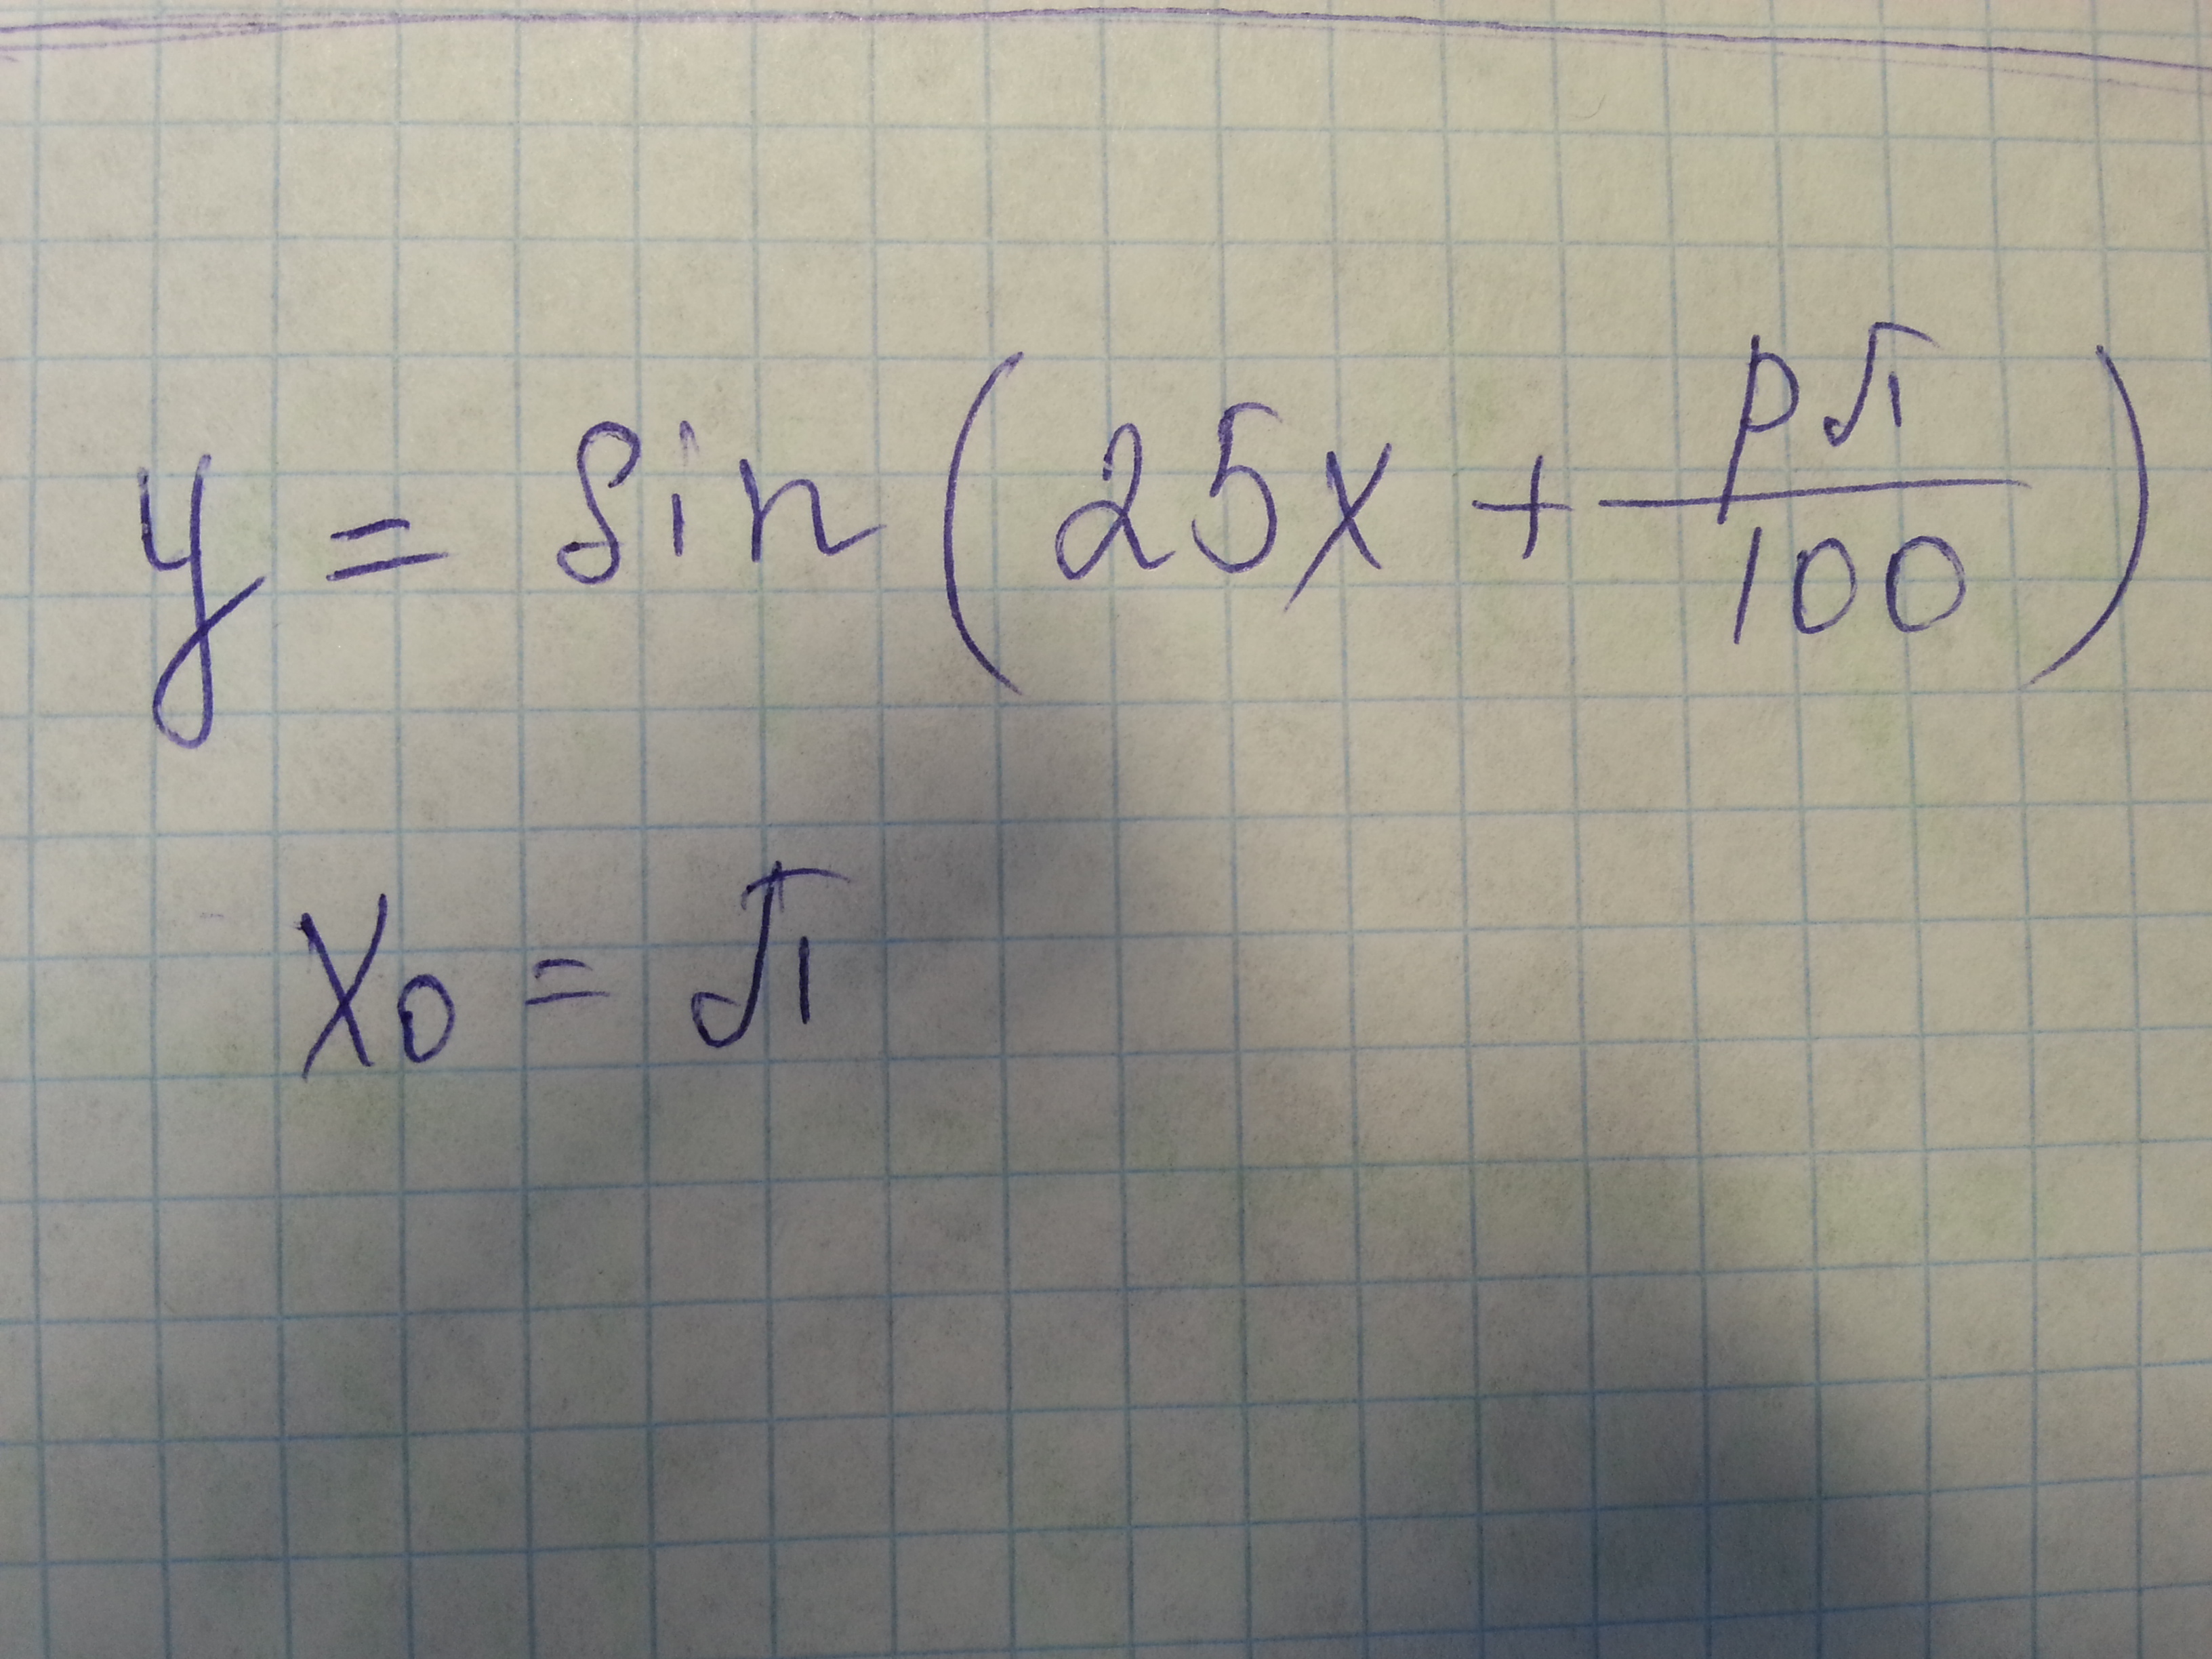 y = sin (25x + pπ/100)
x₀ = π